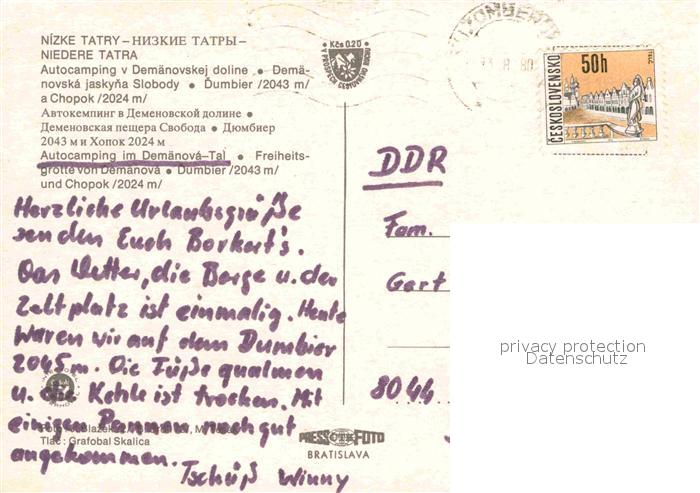 NÍZKE TATRY – НИЗКИЕ ТАТРЫ –
NIEDERE TATRA
Autocamping v Demänovskej doline • Demä-
novská jaskyňa Slobody • Ďumbier /2043 m/
a Chopok /2024 m/
Автокемпинг в Деменовской долине •
Деменовская пещера Свобода • Дюмбиер
2043 м и Хопок 2024 м
Autocamping im Demänová–Tal • Freiheits-
grotte von Demänová • Dumbier /2043 m/
und Chopok /2024 m/
Herzliche Urlaubsgrüße
senden Euch Borkert's.
Das Wetter, die Berge u. der
Zeltplatz ist einmalig. Heute
waren wir auf dem Dumbier
2045 m. Die Füße qualmen
u. die Kehle ist trocken. Mit
einigen Pannen noch gut
angekommen.
Tschüß Winny
Tlač: Grafobal Skalica
Kčs 0.20
ČESKOSLOVENSKO
50h
TELČ
DDR
Fam.
Gert
8044
PRESSFOTO
BRATISLAVA
privacy protection
Datenschutz